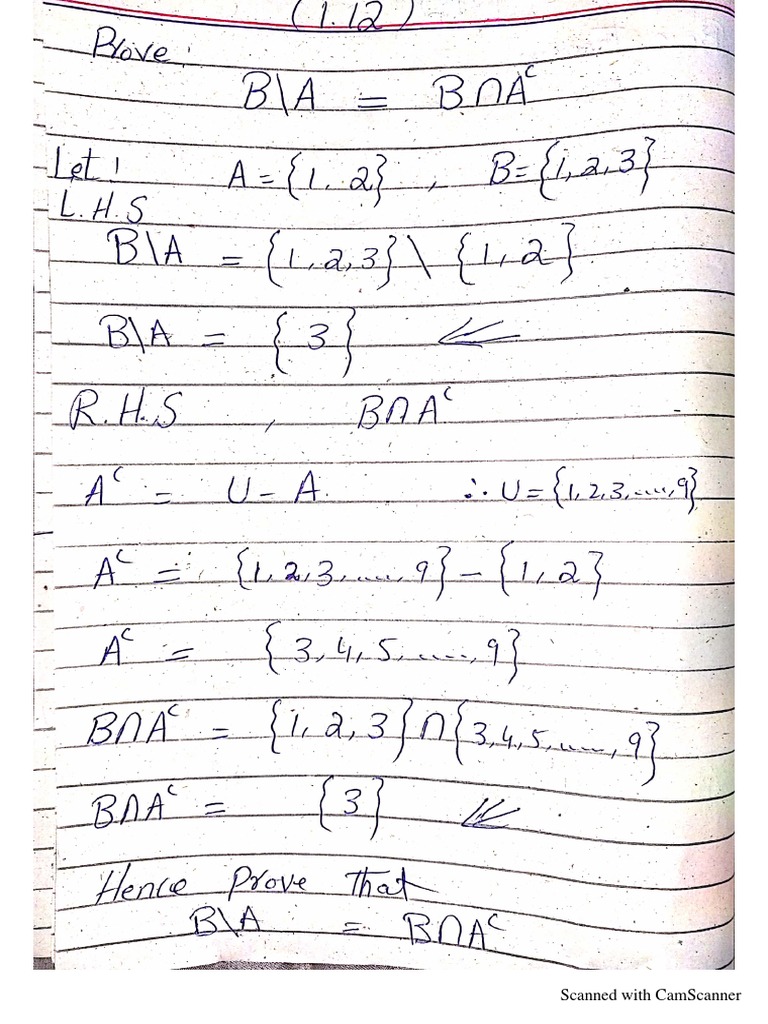 (1.12)
Prove:
B\A = B∩Aᶜ
Let! A = {1, 2} , B = {1, 2, 3}
L.H.S
B\A = {1, 2, 3} \ {1, 2}
B\A = {3}
R.H.S , B∩Aᶜ
Aᶜ = U - A. ∴ U = {1, 2, 3, ....., 9}
Aᶜ = {1, 2, 3, ....., 9} - {1, 2}
Aᶜ = {3, 4, 5, ....., 9}
B∩Aᶜ = {1, 2, 3} ∩ {3, 4, 5, ....., 9}
B∩Aᶜ = {3}
Hence Prove That
B\A = B∩Aᶜ
Scanned with CamScanner